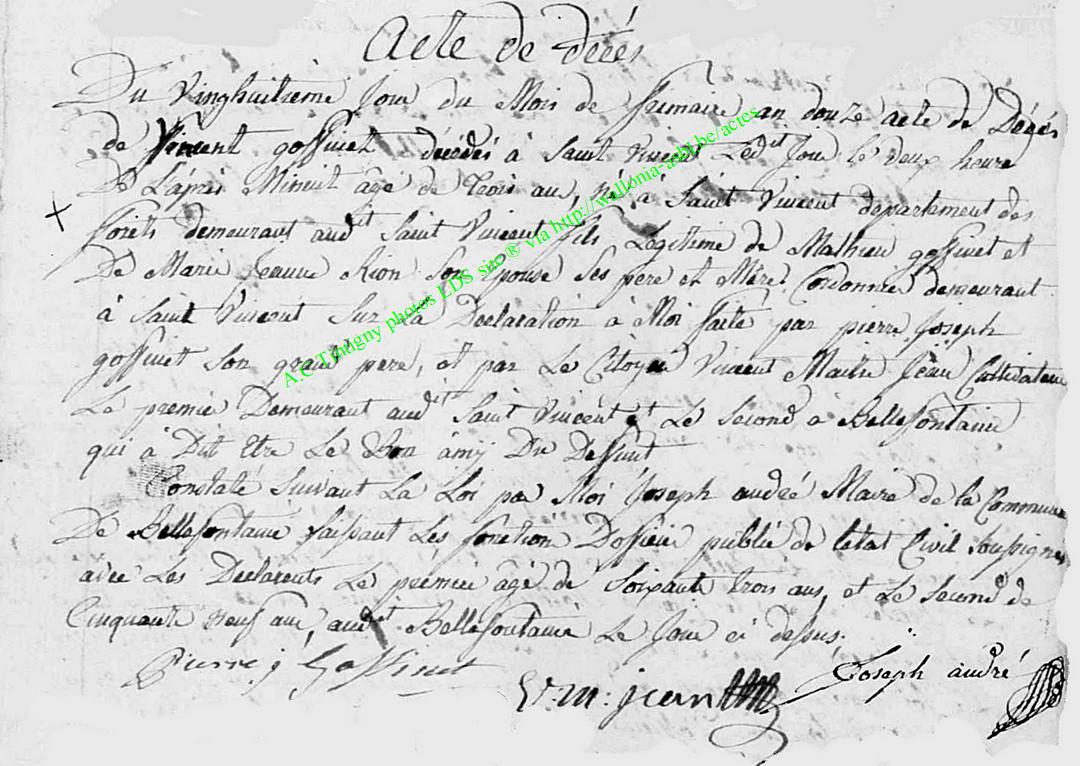 Acte de décés
Du Vinghuitieme Jour du Mois de frimaire an douze acte de Décés
de Vincent goffinet décédés à Saint Vincent Ledit Jour le deux heure
D L'apres Minuit âge de Trois an, né à Saint Vincent departement des
forêts demeurant audt Saint Vincent fils Legitime de Mathieu goffinet et
De Marie Jeanne Rion Son Epouse Ses pere et Mére Cordonnie demeurant
à Saint Vincent Sur La Declaration à Moi faite par pierre Joseph
goffinet Son grand pere, et par Le Citoyen Vincent Maitre Jean Cultivateur
Le premie Demeurant audit Saint Vincent et Le Second à Bellefontaine
qui à Dit Etre Le Bon âmy Du Deffunt
Constaté Suivant La Loi par Moi Joseph andré Maire de la Commune
De Bellefontaine faissant Les fonction Dofficier publié de letat Civil Soussignés
avec Les Declarents Le premie âgé de Soixante trois ans, et Le Second de
Cinquante neuf ans, audit Bellefontaine Le Jour ci dessus.
Pierre j Goffinet
V. m: jean
Joseph andré
A.C Tintigny photos LDS site® via http://wallonia-asbl.be/actes